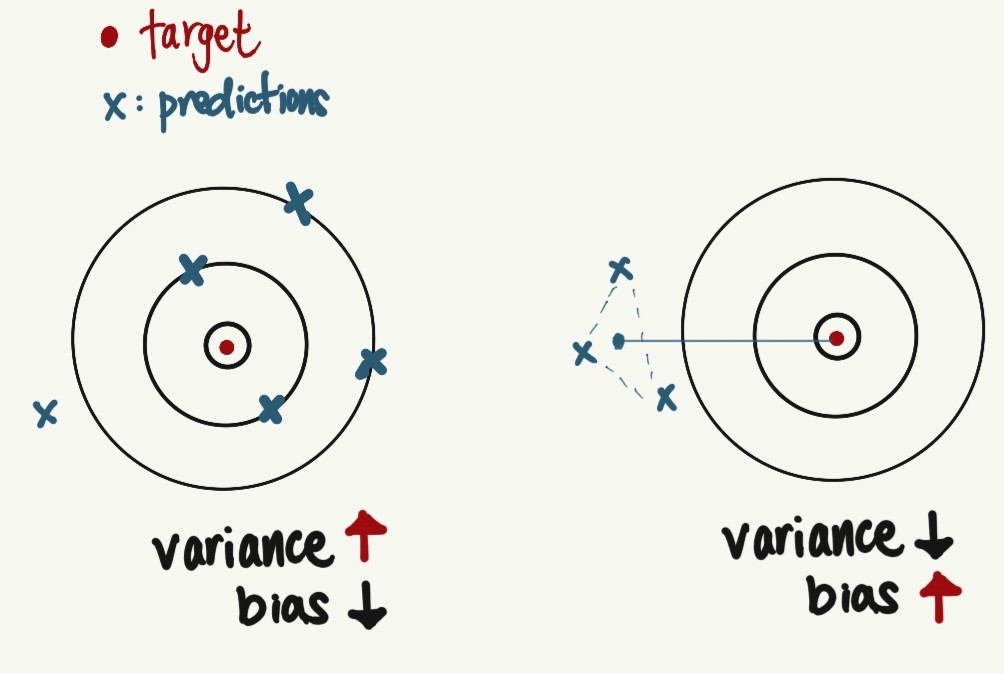 • target
x : predictions
variance ↑
bias ↓
variance ↓
bias ↑